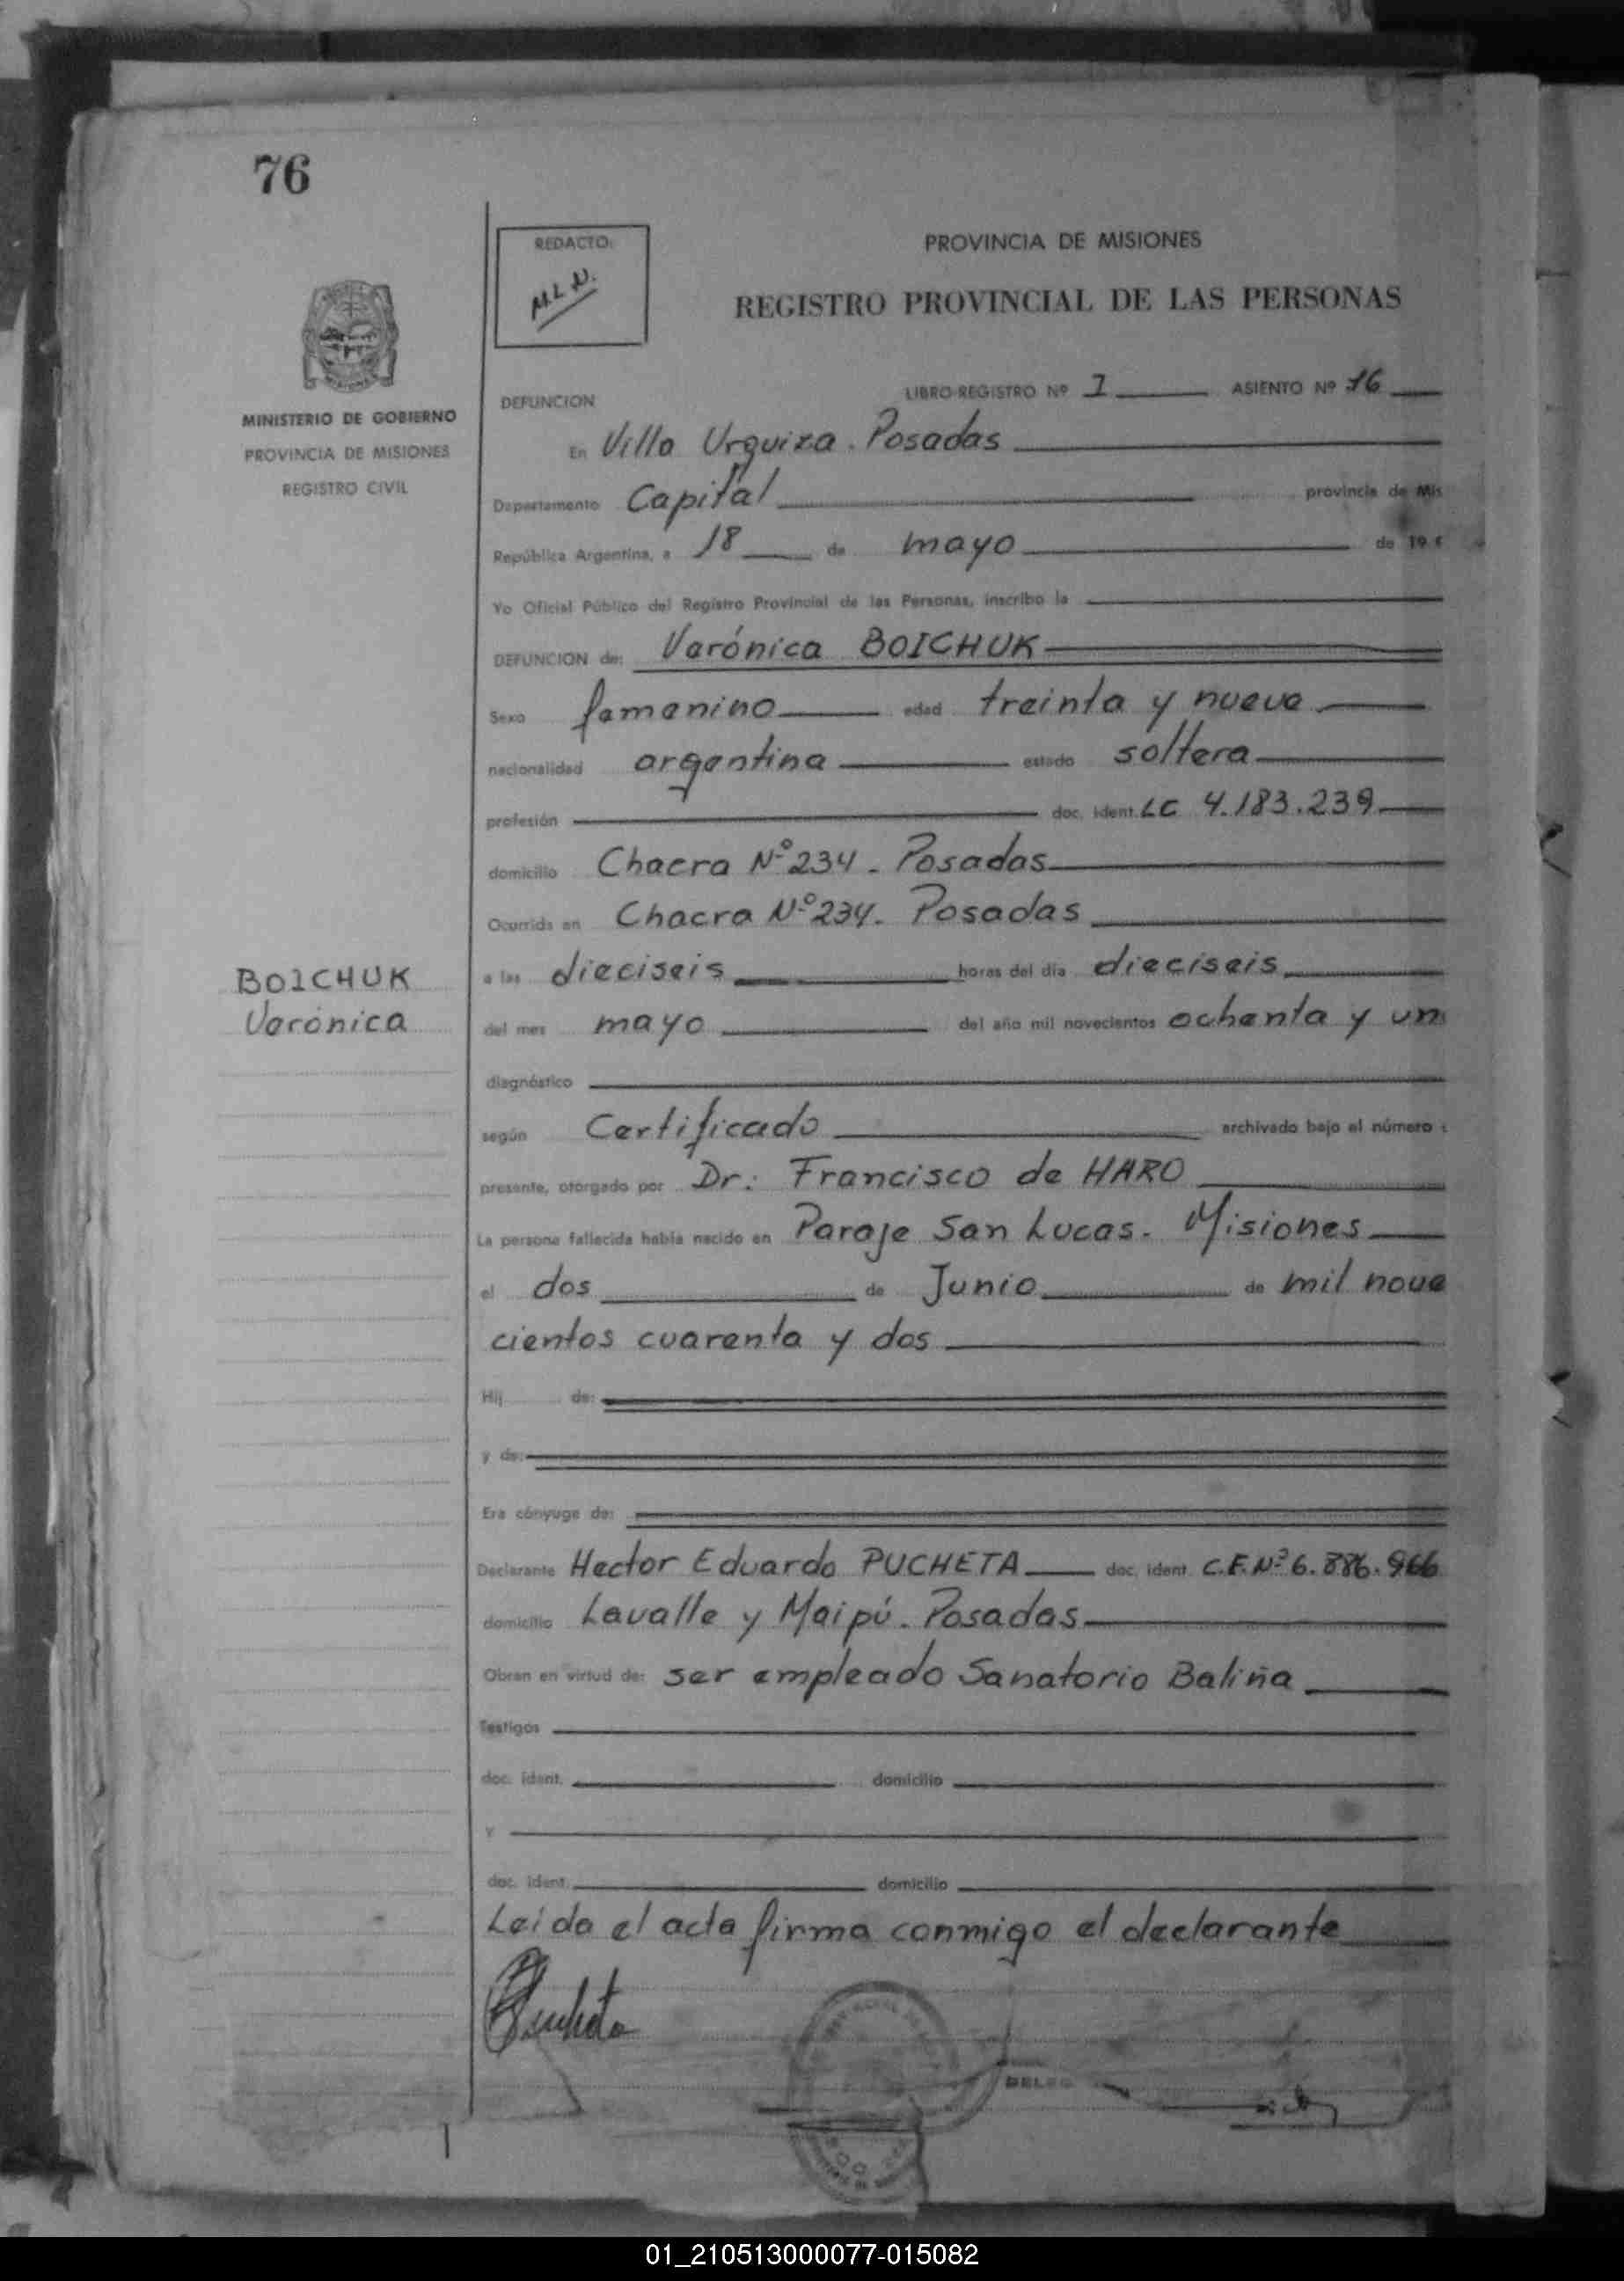 76
REDACTO:
M.L.N.
PROVINCIA DE MISIONES
REGISTRO PROVINCIAL DE LAS PERSONAS
MINISTERIO DE GOBIERNO
PROVINCIA DE MISIONES
REGISTRO CIVIL
DEFUNCION
LIBRO-REGISTRO Nº 1 ASIENTO Nº 76
En Villa Urquiza. Posadas
Departamento Capital provincia de Mis
República Argentina, a 18 de mayo de 19
Yo Oficial Público del Registro Provincial de las Personas, inscribo la
DEFUNCION de: Verónica BOICHUK
Sexo femenino edad treinta y nueve
nacionalidad argentina estado soltera
profesión doc. ident. LC 4.183.239
domicilio Chacra Nº 234 - Posadas
Ocurrida en Chacra Nº 234. Posadas
BOICHUK
Verónica
a las dieciseis horas del día dieciseis
del mes mayo del año mil novecientos ochenta y un
diagnóstico
según Certificado archivado bajo el número
presente, otorgado por Dr: Francisco de HARO
La persona fallecida había nacido en Paraje San Lucas - Misiones
el dos de Junio de mil nove
cientos cuarenta y dos
Hij de:
y de:
Era cónyuge de:
Declarante Hector Eduardo PUCHETA doc. ident. C.F. Nº 6.886.966
domicilio Lavalle y Maipú. Posadas
Obran en virtud de: ser empleado Sanatorio Baliña
Testigos
doc. ident. domicilio
y
doc. ident. domicilio
Leída el acta firma conmigo el declarante
Pucheta
01_210513000077-015082